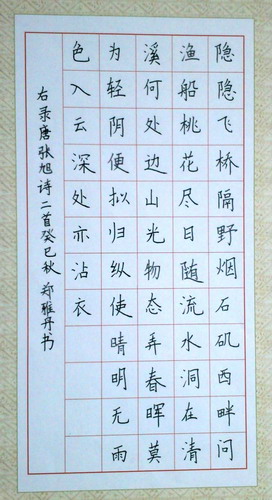 隐隐飞桥隔野烟石矶西畔问
渔船桃花尽日随流水洞在清
溪何处边山光物态弄春晖莫
为轻阴便拟归纵使晴明无雨
色入云深处亦沾衣
右录唐张旭诗二首癸巳秋 郑雅丹书